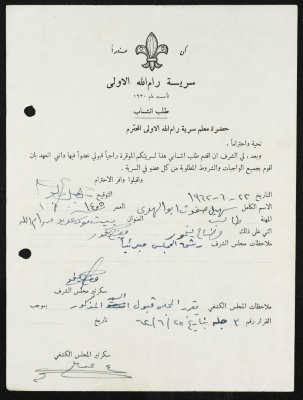 كن مستعداً
سرية رام الله الاولى
تأسست عام ١٩٣٠
طلب انتساب
حضرة معلم سرية رام الله الاولى المحترم
تحية واحتراماً ،
وبعد ، لي الشرف ان اقدم طلب انتسابي هذا لسريتكم الموقرة راجياً قبولي عضواً فيها وانني اتعهد بان
اقوم بجميع الواجبات والشروط المطلوبة من كل عضو في السرية .
واقبلوا وافر الاحترام
التاريخ ٢٢-٦-١٩٦٢ التوقيع
الاسم الكامل سهيل صفوت ابو الهدى العمر
المهنة طالب العنوان رام الله
اثني على ذلك
ملاحظات مجلس الشرف رشحه المجلس مبدئياً
سكرتير مجلس الشرف
ملاحظات المجلس الكشفي تقرر المجلس قبول السيد المذكور بموجب
القرار رقم ٣ جلسة بتاريخ ٢٥/٦/٦٢
تاريخ
سكرتير المجلس الكشفي